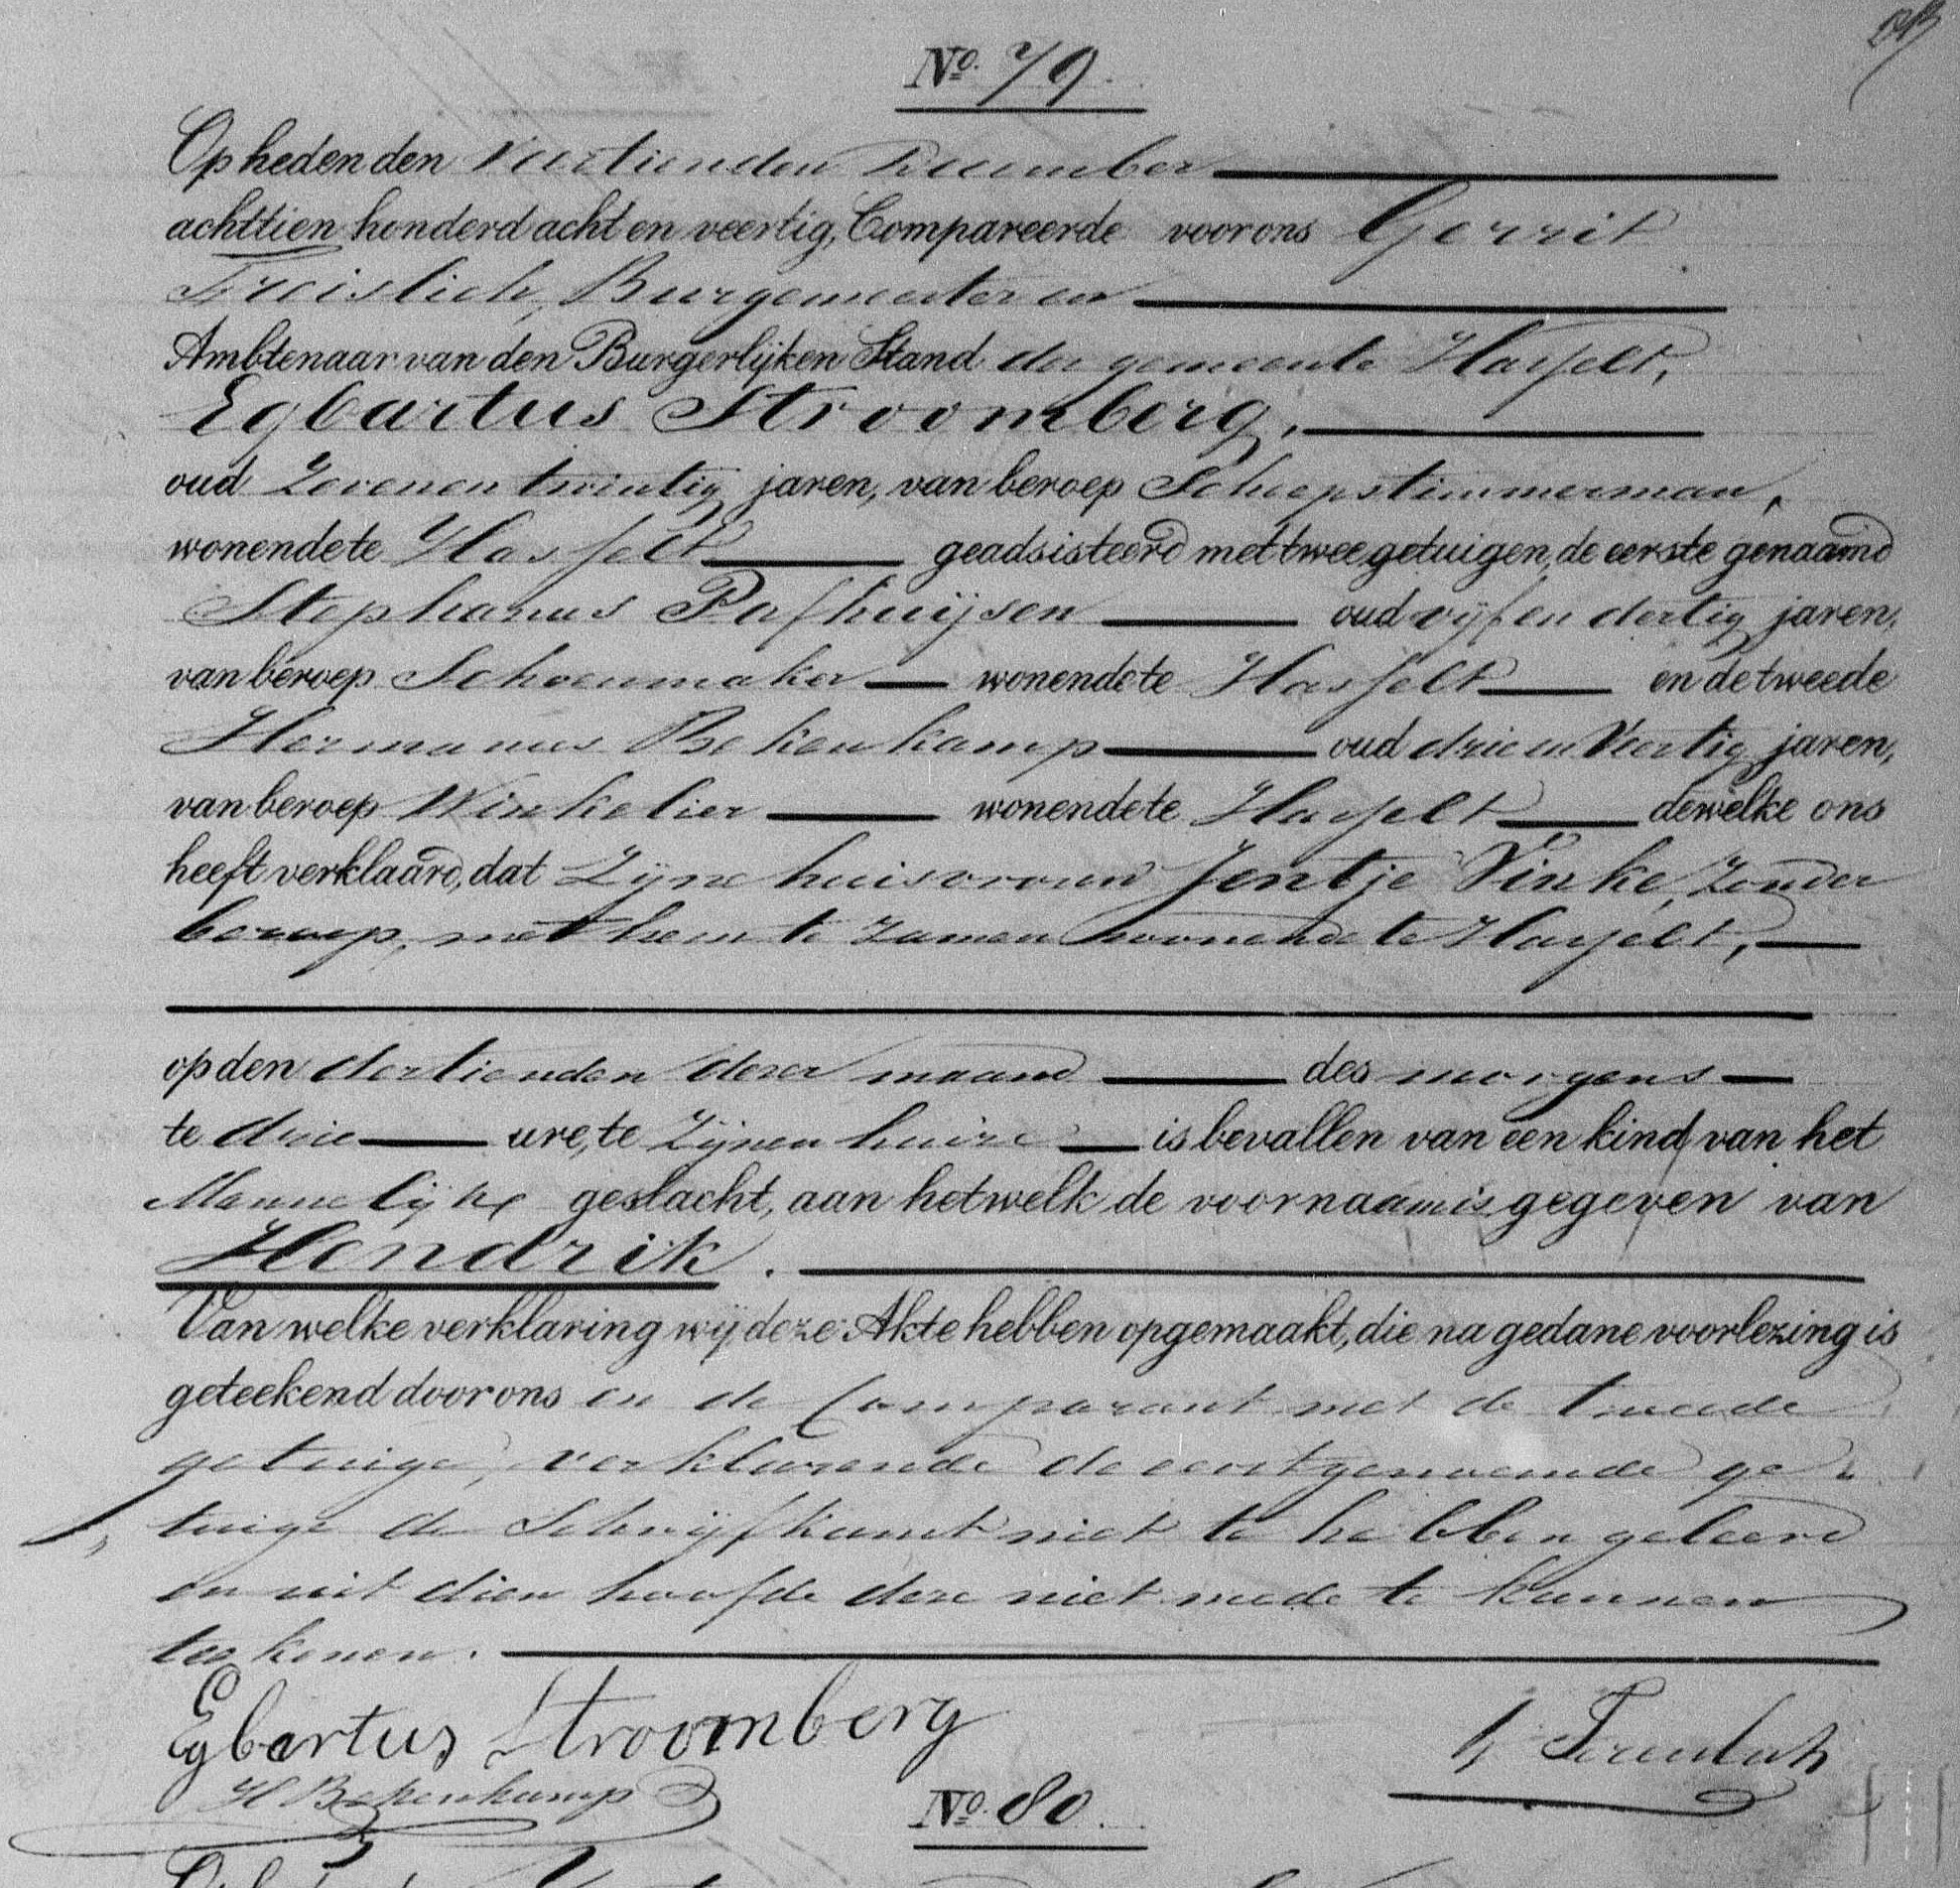 No. 79.
Op heden den Veertienden December
achttien honderd acht en veertig, Compareerde voor ons Gerrit
Freislich, Burgemeester en
Ambtenaar van den Burgerlijken Stand der gemeente Hasselt,
Egbartus Stroomberg,
oud Zevenentwintig jaren, van beroep Scheepstimmerman,
wonende te Hasselt geadsisteerd met twee getuigen, de eerste genaamd
Stephanus Pafhuijsen oud vijf en dertig jaren,
van beroep Schoenmaker wonende te Hasselt en de tweede
Hermanus Bekenkamp oud drie en Veertig jaren,
van beroep Winkelier wonende te Hasselt dewelke ons
heeft verklaard, dat Zijne huisvrouw Jentje Vinke, Zonder
beroep, met hem te zamen woonende te Hasselt,
op den dertienden dezer maand des morgens
te drie ure, te Zijnen huize is bevallen van een kind van het
Mannelijke geslacht, aan hetwelk de voornaam is gegeven van
Hendrik.
Van welke verklaring wij deze Akte hebben opgemaakt, die na gedane voorlezing is
geteekend door ons en de Comparant met de tweede
getuige, verklarende de eerstgenoemde ge
tuige de Schrijfkunst niet te hebben geleerd
en uit dien hoofde deze niet mede te kunnen
teekenen.
Egbartus Stroomberg
H Bekenkamp
No. 80.